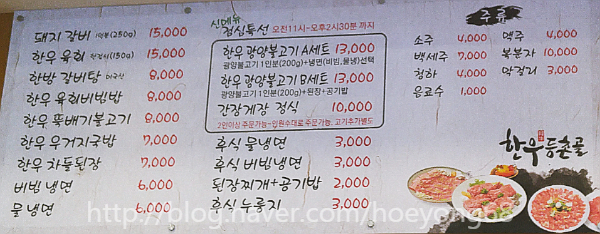 돼지 갈비 1인분(250g) 15,000
한우 육회 한접시(150g) 15,000
한방 갈비탕 미국산 8,000
한우 육회비빔밥 8,000
한우 뚝배기불고기 8,000
한우 우거지국밥 7,000
한우 차돌된장 7,000
비빔냉면 6,000
물냉면 6,000
신메뉴
점심특선 오전11시~오후2시30분 까지
한우 광양불고기 A세트 13,000
광양불고기 1인분(200g)+냉면(비빔,물냉)선택
한우 광양불고기 B세트 13,000
광양불고기 1인분(200g)+된장+공기밥
간장게장 정식 10,000
2인이상 주문가능~인원수대로 주문가능, 고기추가별도
후식 물냉면 3,000
후식 비빔냉면 3,000
된장찌개+공기밥 2,000
후식 누룽지 3,000
주류
소주 4,000
백세주 7,000
청하 4,000
음료수 1,000
맥주 4,000
복분자 10,000
막걸리 3,000
한우등촌골
http://blog.naver.com/hoeyongpa